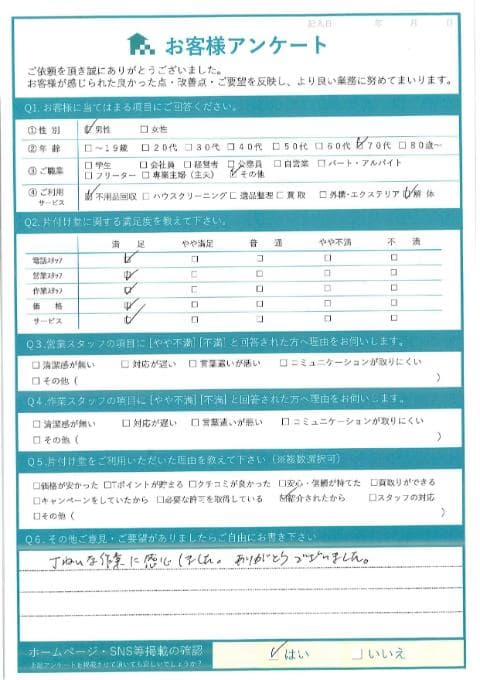 記入日 年 月 日
お客様アンケート
ご依頼を頂き誠にありがとうございました。
お客様が感じられた良かった点・改善点・ご要望を反映し、より良い業務に努めてまいります。
Q1. お客様に当てはまる項目にご回答ください。
①性 別 ☑男性 □女性
②年 齢 □～19歳 □20代 □30代 □40代 □50代 □60代 ☑70代 □80歳～
③ご職業 □学生 □会社員 □経営者 □公務員 □自営業 □パート・アルバイト
□フリーター □専業主婦（主夫） ☑その他
④ご利用サービス ☑不用品回収 □ハウスクリーニング □遺品整理 □買取 □外構・エクステリア ☑解体
Q2.片付け堂に関する満足度を教えて下さい。
満 足 やや満足 普 通 やや不満 不 満
電話スタッフ ☑ □ □ □ □
営業スタッフ ☑ □ □ □ □
作業スタッフ ☑ □ □ □ □
価 格 ☑ □ □ □ □
サービス ☑ □ □ □ □
Q3.営業スタッフの項目に［やや不満］［不満］と回答された方へ理由をお伺いします。
□清潔感が無い □対応が遅い □言葉遣いが悪い □コミュニケーションが取りにくい
□その他（ ）
Q4.作業スタッフの項目に［やや不満］［不満］と回答された方へ理由をお伺いします。
□清潔感が無い □対応が遅い □言葉遣いが悪い □コミュニケーションが取りにくい
□その他（ ）
Q5.片付け堂をご利用いただいた理由を教えて下さい（※複数選択可）
□価格が安かった □Tポイントが貯まる □クチコミが良かった □安心・信頼が持てた □買取りができる
□キャンペーンをしていたから □必要な許可を取得している ☑紹介されたから □スタッフの対応
□その他（ ）
Q6.その他ご意見・ご要望がありましたらご自由にお書き下さい
丁ねいな作業に感心しました。ありがとうございました。
ホームページ・SNS等掲載の確認 ☑はい □いいえ
上記アンケートを掲載させて頂いても宜しいでしょうか？